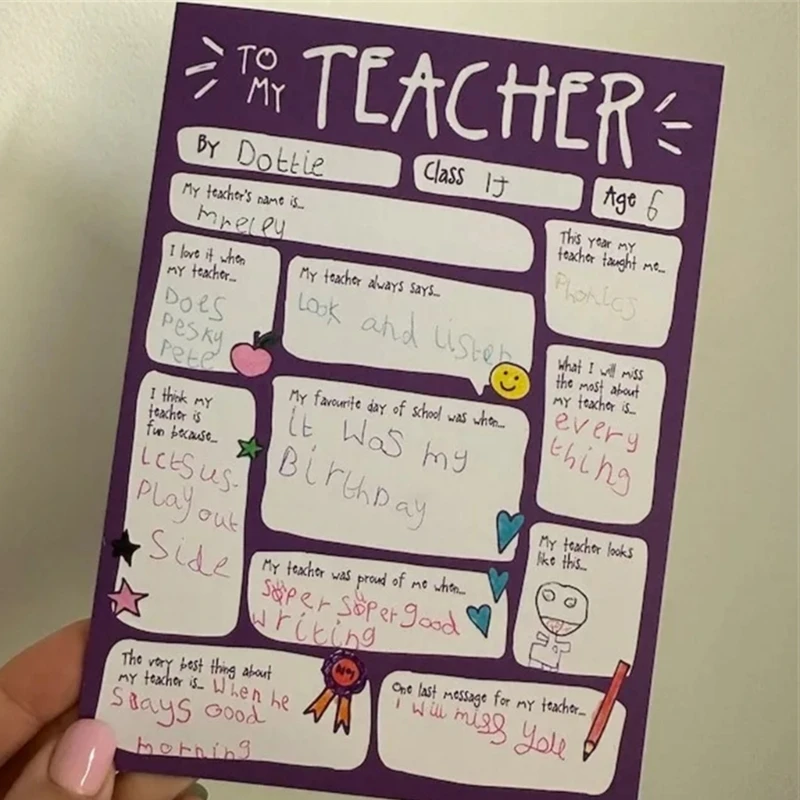 TO MY TEACHER
BY Dottie
Class 1J
Age 6
My teacher's name is...
mreley
This year my
teacher taught me...
Phonics
I love it when
my teacher...
Does
Pesky
Pete
My teacher always says...
Look and listen
What I will miss
the most about
my teacher is...
every
thing
I think my
teacher is
fun because...
Letsus
Play out
Side
My favourite day of school was when...
it was my
Birthday
My teacher looks
like this...
My teacher was proud of me when...
super super good
writing
The very best thing about
my teacher is... when he
says Good
morning
One last message for my teacher...
I will miss you